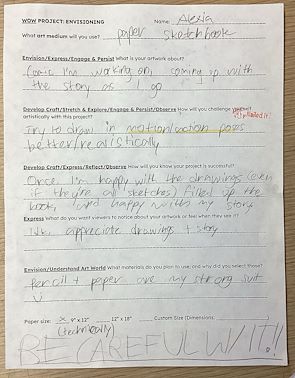 WOW PROJECT: ENVISIONING Name: Alexia
What art medium will you use? paper sketchbook
Envision/Express/Engage & Persist What is your artwork about?
Comic I'm working on, coming up with
the story as I go
Develop Craft/Stretch & Explore/Engage & Persist/Observe How will you challenge yourself
artistically with this project? nailed it!
Try to draw in motion/action poses
better/realistically
Develop Craft/Express/Reflect/Observe How will you know your project is successful?
Once I'm happy with the drawings (even
if they're all sketches) filled up the
book, and happy with my story
Express What do you want viewers to notice about your artwork or feel when they see it?
appreciate drawings + story
Envision/Understand Art World What materials do you plan to use, and why did you select those?
pencil + paper are my strong suit
Paper size: x 9" x 12" 12" x 18" Custom Size (Dimensions:
(technically)
BE CAREFUL W/ IT!!